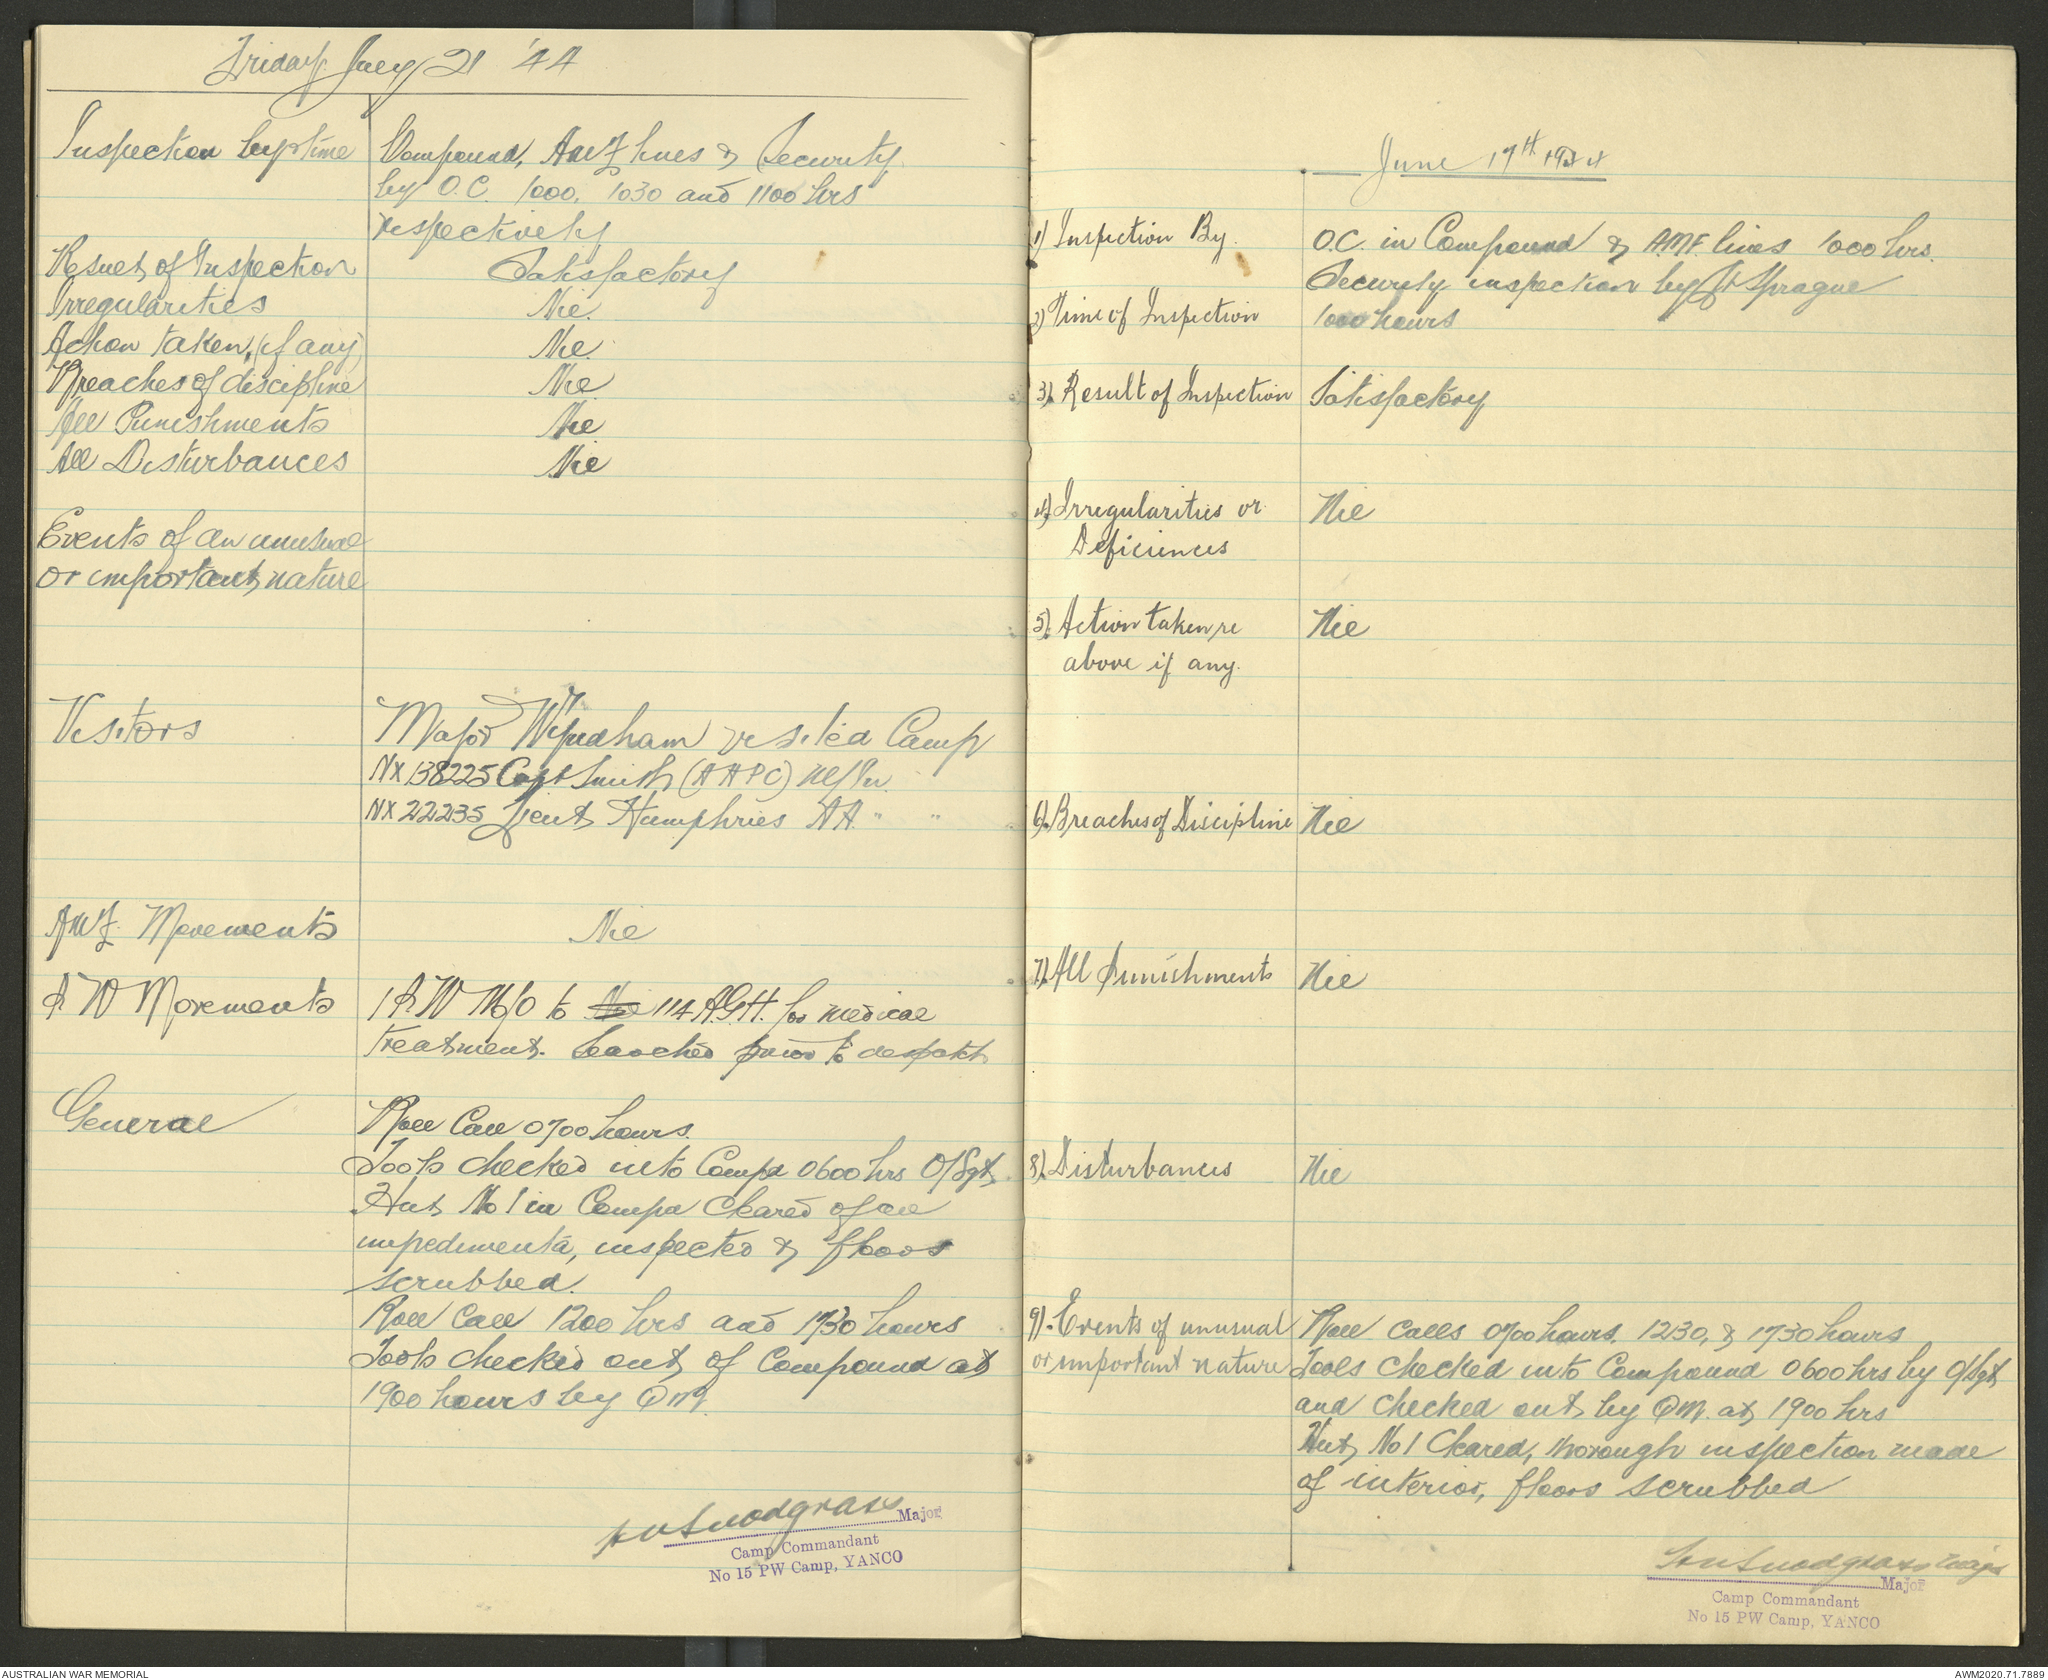 Friday July 21 '44
Inspection by & time
Compound, AMF lines & Security
by O.C. 1000, 1030 and 1100 hrs
respectively
Result of Inspection Satisfactory
Irregularities Nil.
Action taken, (if any) Nil.
Breaches of discipline Nil
All Punishments Nil
All Disturbances Nil
Events of an unusual
or important nature
Visitors Major Wyndham visited Camp
NX 138225 Capt Smith (AAPC)
NX 22235 Lieut Humphries AA " "
AMF. Movements Nil
P.W Movements 1 P.W M/O to Nil 114 A.G.H. for medical
treatment. Searched prior to despatch
General Roll Call 0700 hours.
Tools checked into Compd 0600 hrs O/Sgt.
Hut No 1 in Compd cleared of all
impedimenta, inspected & floors
scrubbed.
Roll Call 1200 hrs and 1730 hours
Tools checked out of Compound at
1900 hours by QM.
Snodgrass Major
Camp Commandant
No 15 PW Camp, YANCO
June 17th 1944
1) Inspection By. O.C. in Compound & A.M.F. lines 1000 hrs.
Security inspection by Lt Sprague
2) Time of Inspection 1000 hours
3). Result of Inspection Satisfactory
4). Irregularities or Nil
Deficiences
5). Action taken re Nil
above if any.
6). Breaches of Discipline Nil
7). All Punishments Nil
8). Disturbances Nil
9). Events of unusual Roll Calls 0700 hours. 1230, & 1730 hours
or important nature Tools checked into Compound 0600 hrs by O/Sgt
and checked out by QM. at 1900 hrs
Hut No 1 Cleared, thorough inspection made
of interior, floors scrubbed
Snodgrass Major
Major
Camp Commandant
No 15 PW Camp, YANCO
AUSTRALIAN WAR MEMORIAL
AWM2020.71.7889